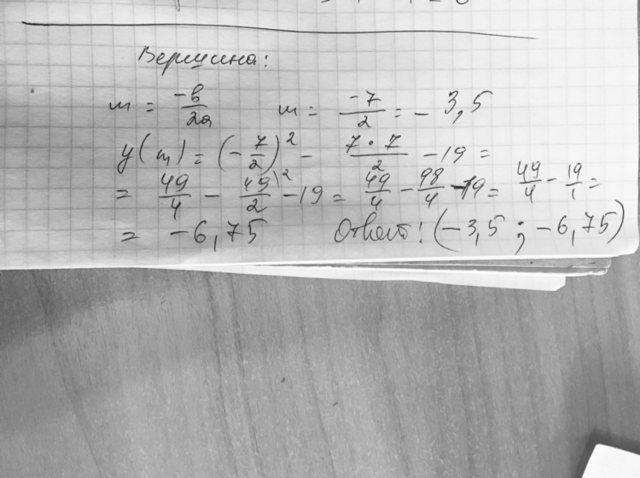 Вершина:
m = -b/2a   m = -7/2 = - 3,5
y(m) = (-7/2)² - 7·7/2 - 19 =
= 49/4 - 49\²/2 - 19 = 49/4 - 98/4 - 19 = 49/4 - 19/1 =
= -6,75   Ответ: (-3,5 ; -6,75)